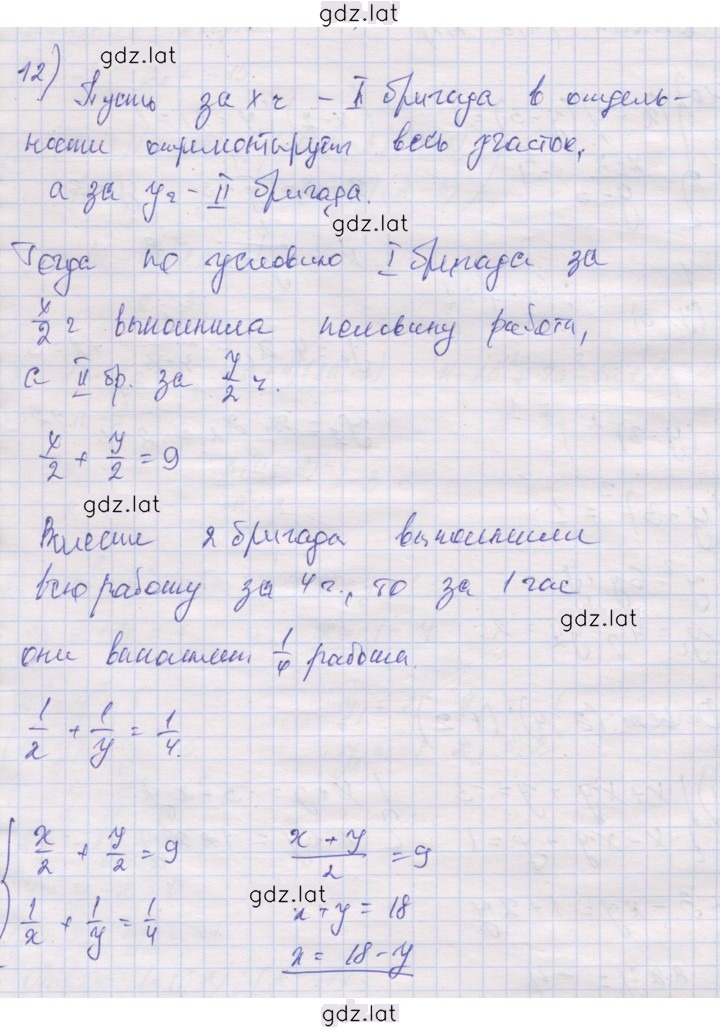 gdz.lat
12)
gdz.lat
Пусть за x ч - I бригада в отдель-
ности отремонтирует весь участок,
а за y ч - II бригада.
gdz.lat
Тогда по условию I бригада за
x/2 ч выполнила половину работы,
а II бр. за y/2 ч.
x/2 + y/2 = 9
gdz.lat
Вместе 2 бригада выполнили
всю работу за 4 ч., то за 1 час
gdz.lat
они выполнят 1/4 работы.
1/x + 1/y = 1/4.
x/2 + y/2 = 9
1/x + 1/y = 1/4
(x + y)/2 = 9
gdz.lat
x + y = 18
x = 18 - y
gdz.lat